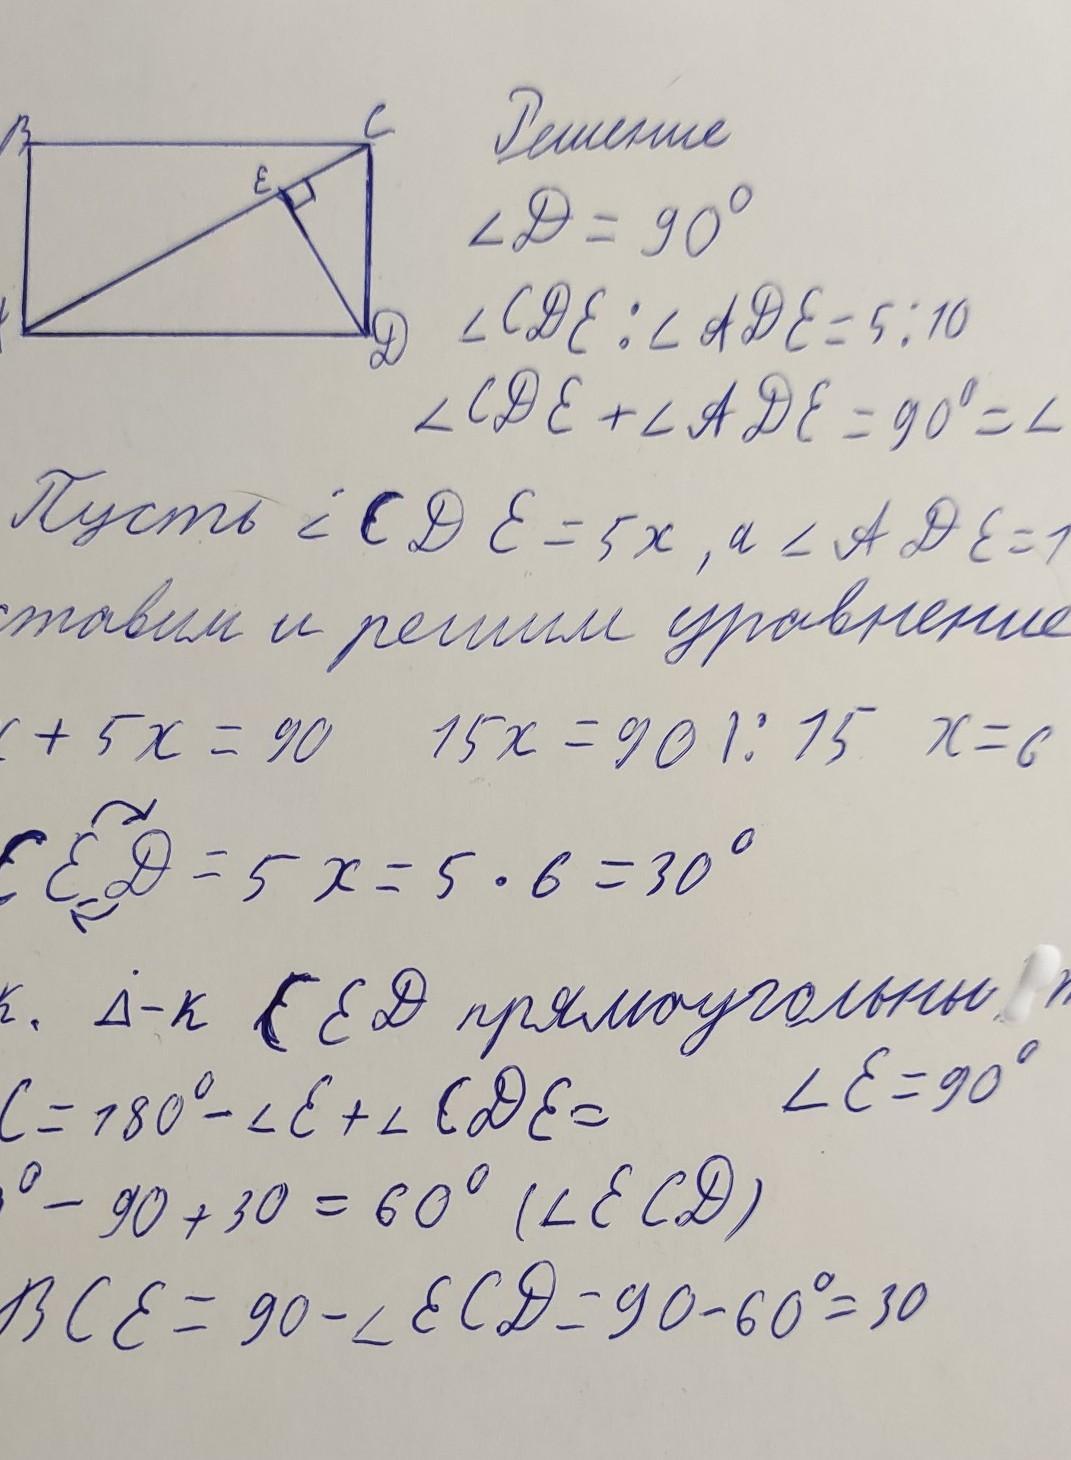 B
C
E
D
Решение
∠D = 90°
∠CDE : ∠ADE = 5 : 10
∠CDE + ∠ADE = 90° = ∠
Пусть ∠CDE = 5x, а ∠ADE = 1
ставим и решим уравнение
x + 5x = 90 15x = 90 |: 15 x = 6
CED = 5x = 5 · 6 = 30°
к. Δ-к CED прямоугольны
C = 180° - ∠E + ∠CDE = ∠E = 90°
° - 90 + 30 = 60° (∠ECD)
BCE = 90 - ∠ECD = 90 - 60° = 30